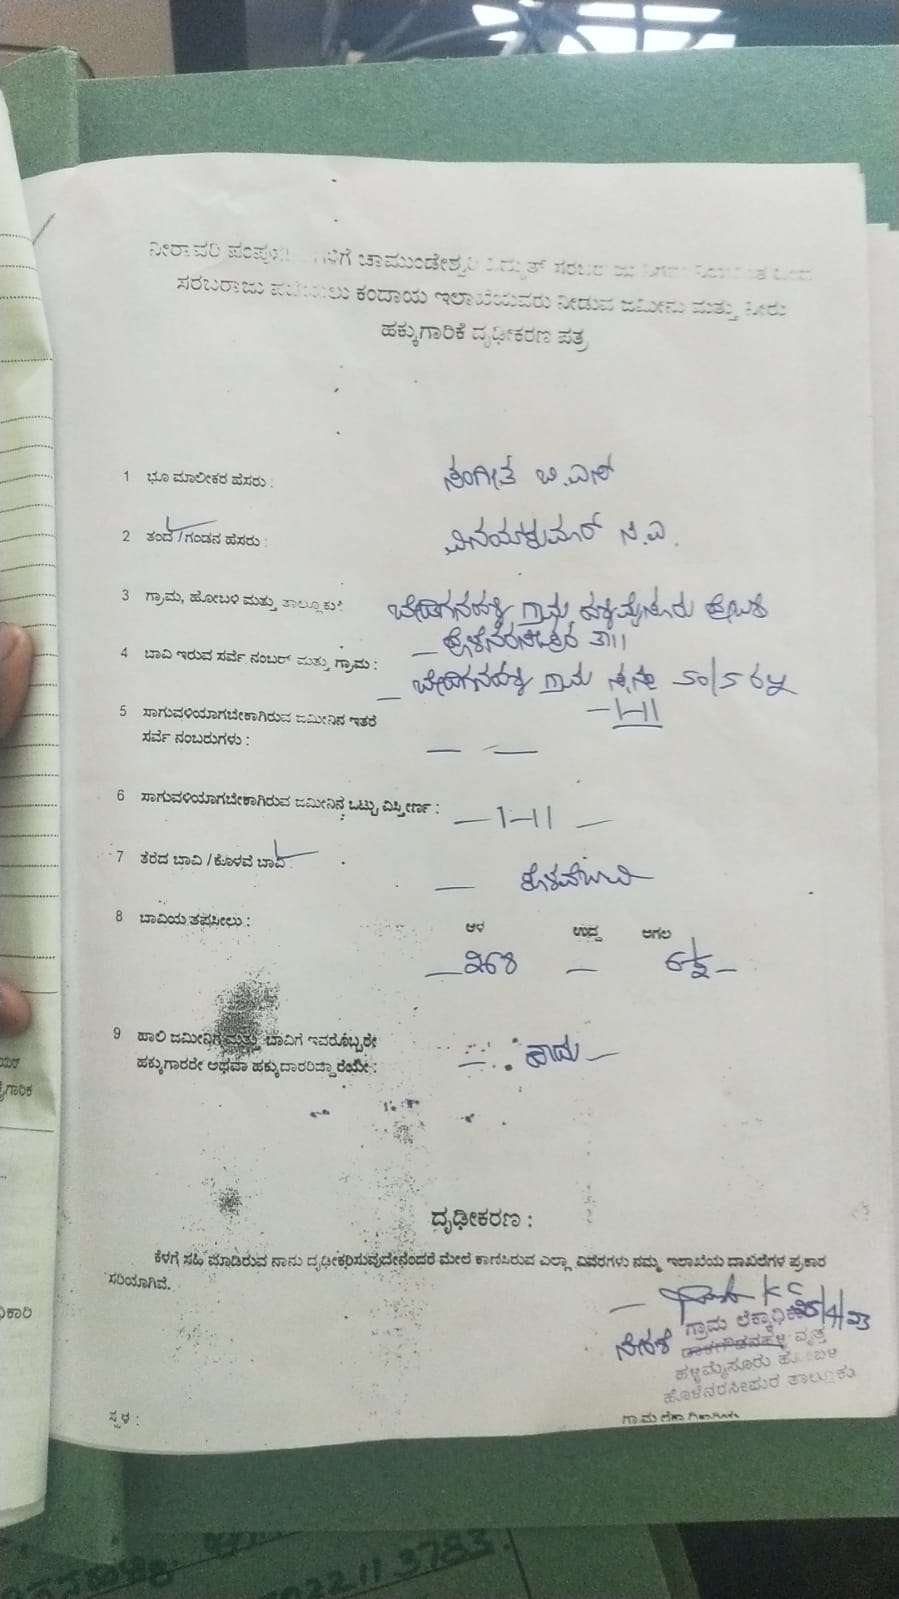 ನೀರಾವರಿ ಚಾಮುಂಡೇಶ್ವರಿ ವಿದ್ಯುತ್ ಸರಬರಾಜು
ಸರಬರಾಜು ಪಡೆಯಲು ಕಂದಾಯ ಇಲಾಖೆಯವರು ನೀಡುವ ಜಮೀನು ಮತ್ತು ನೀರು
ಹಕ್ಕುಗಾರಿಕೆ ದೃಢೀಕರಣ ಪತ್ರ
1 ಭೂ ಮಾಲೀಕರ ಹೆಸರು : ಸಂಗೀತ ಬಿ.ಎಸ್
2 ತಂದೆ / ಗಂಡನ ಹೆಸರು : ವಿನಯ್‌ಕುಮಾರ್ ಸಿ.ಎ.
3 ಗ್ರಾಮ, ಹೋಬಳಿ ಮತ್ತು ತಾಲ್ಲೂಕು : ಗ್ರಾಮ ಹಳ್ಳಿಮೈಸೂರು ಹೋಬಳಿ
ಹೊಳೆನರಸೀಪುರ ತಾ||
4 ಬಾವಿ ಇರುವ ಸರ್ವೆ ನಂಬರ್ ಮತ್ತು ಗ್ರಾಮ : ಗ್ರಾಮ
– 1–11
5 ಸಾಗುವಳಿಯಾಗಬೇಕಾಗಿರುವ ಜಮೀನಿನ ಇತರೆ
ಸರ್ವೆ ನಂಬರುಗಳು : — —
6 ಸಾಗುವಳಿಯಾಗಬೇಕಾಗಿರುವ ಜಮೀನಿನ ಒಟ್ಟು ವಿಸ್ತೀರ್ಣ : — 1–11 —
7 ತೆರೆದ ಬಾವಿ / ಕೊಳವೆ ಬಾವಿ : — ಕೊಳವೆಬಾವಿ
8 ಬಾವಿಯ ತಪಸೀಲು : ಆಳ ಉದ್ದ ಅಗಲ
— 268 — 6½ —
9 ಹಾಲಿ ಜಮೀನಿಗೆ ಮತ್ತು ಬಾವಿಗೆ ಇವರೊಬ್ಬರೇ
ಹಕ್ಕುದಾರರೇ ಅಥವಾ ಹಕ್ಕುದಾರರಿದ್ದಾರೆಯೇ : — ಹೌದು —
ದೃಢೀಕರಣ :
ಕೆಳಗೆ ಸಹಿ ಮಾಡಿರುವ ನಾನು ದೃಢೀಕರಿಸುವುದೇನೆಂದರೆ ಮೇಲೆ ಕಾಣಿಸಿರುವ ಎಲ್ಲಾ ವಿವರಗಳು ನಮ್ಮ ಇಲಾಖೆಯ ದಾಖಲೆಗಳ ಪ್ರಕಾರ
ಸರಿಯಾಗಿವೆ.
25/4/23
ಗ್ರಾಮ ಲೆಕ್ಕಾಧಿಕಾರಿ
ವೃತ್ತ
ಹಳ್ಳಿಮೈಸೂರು ಹೋಬಳಿ
ಹೊಳೆನರಸೀಪುರ ತಾಲ್ಲೂಕು
ಸ್ಥಳ :